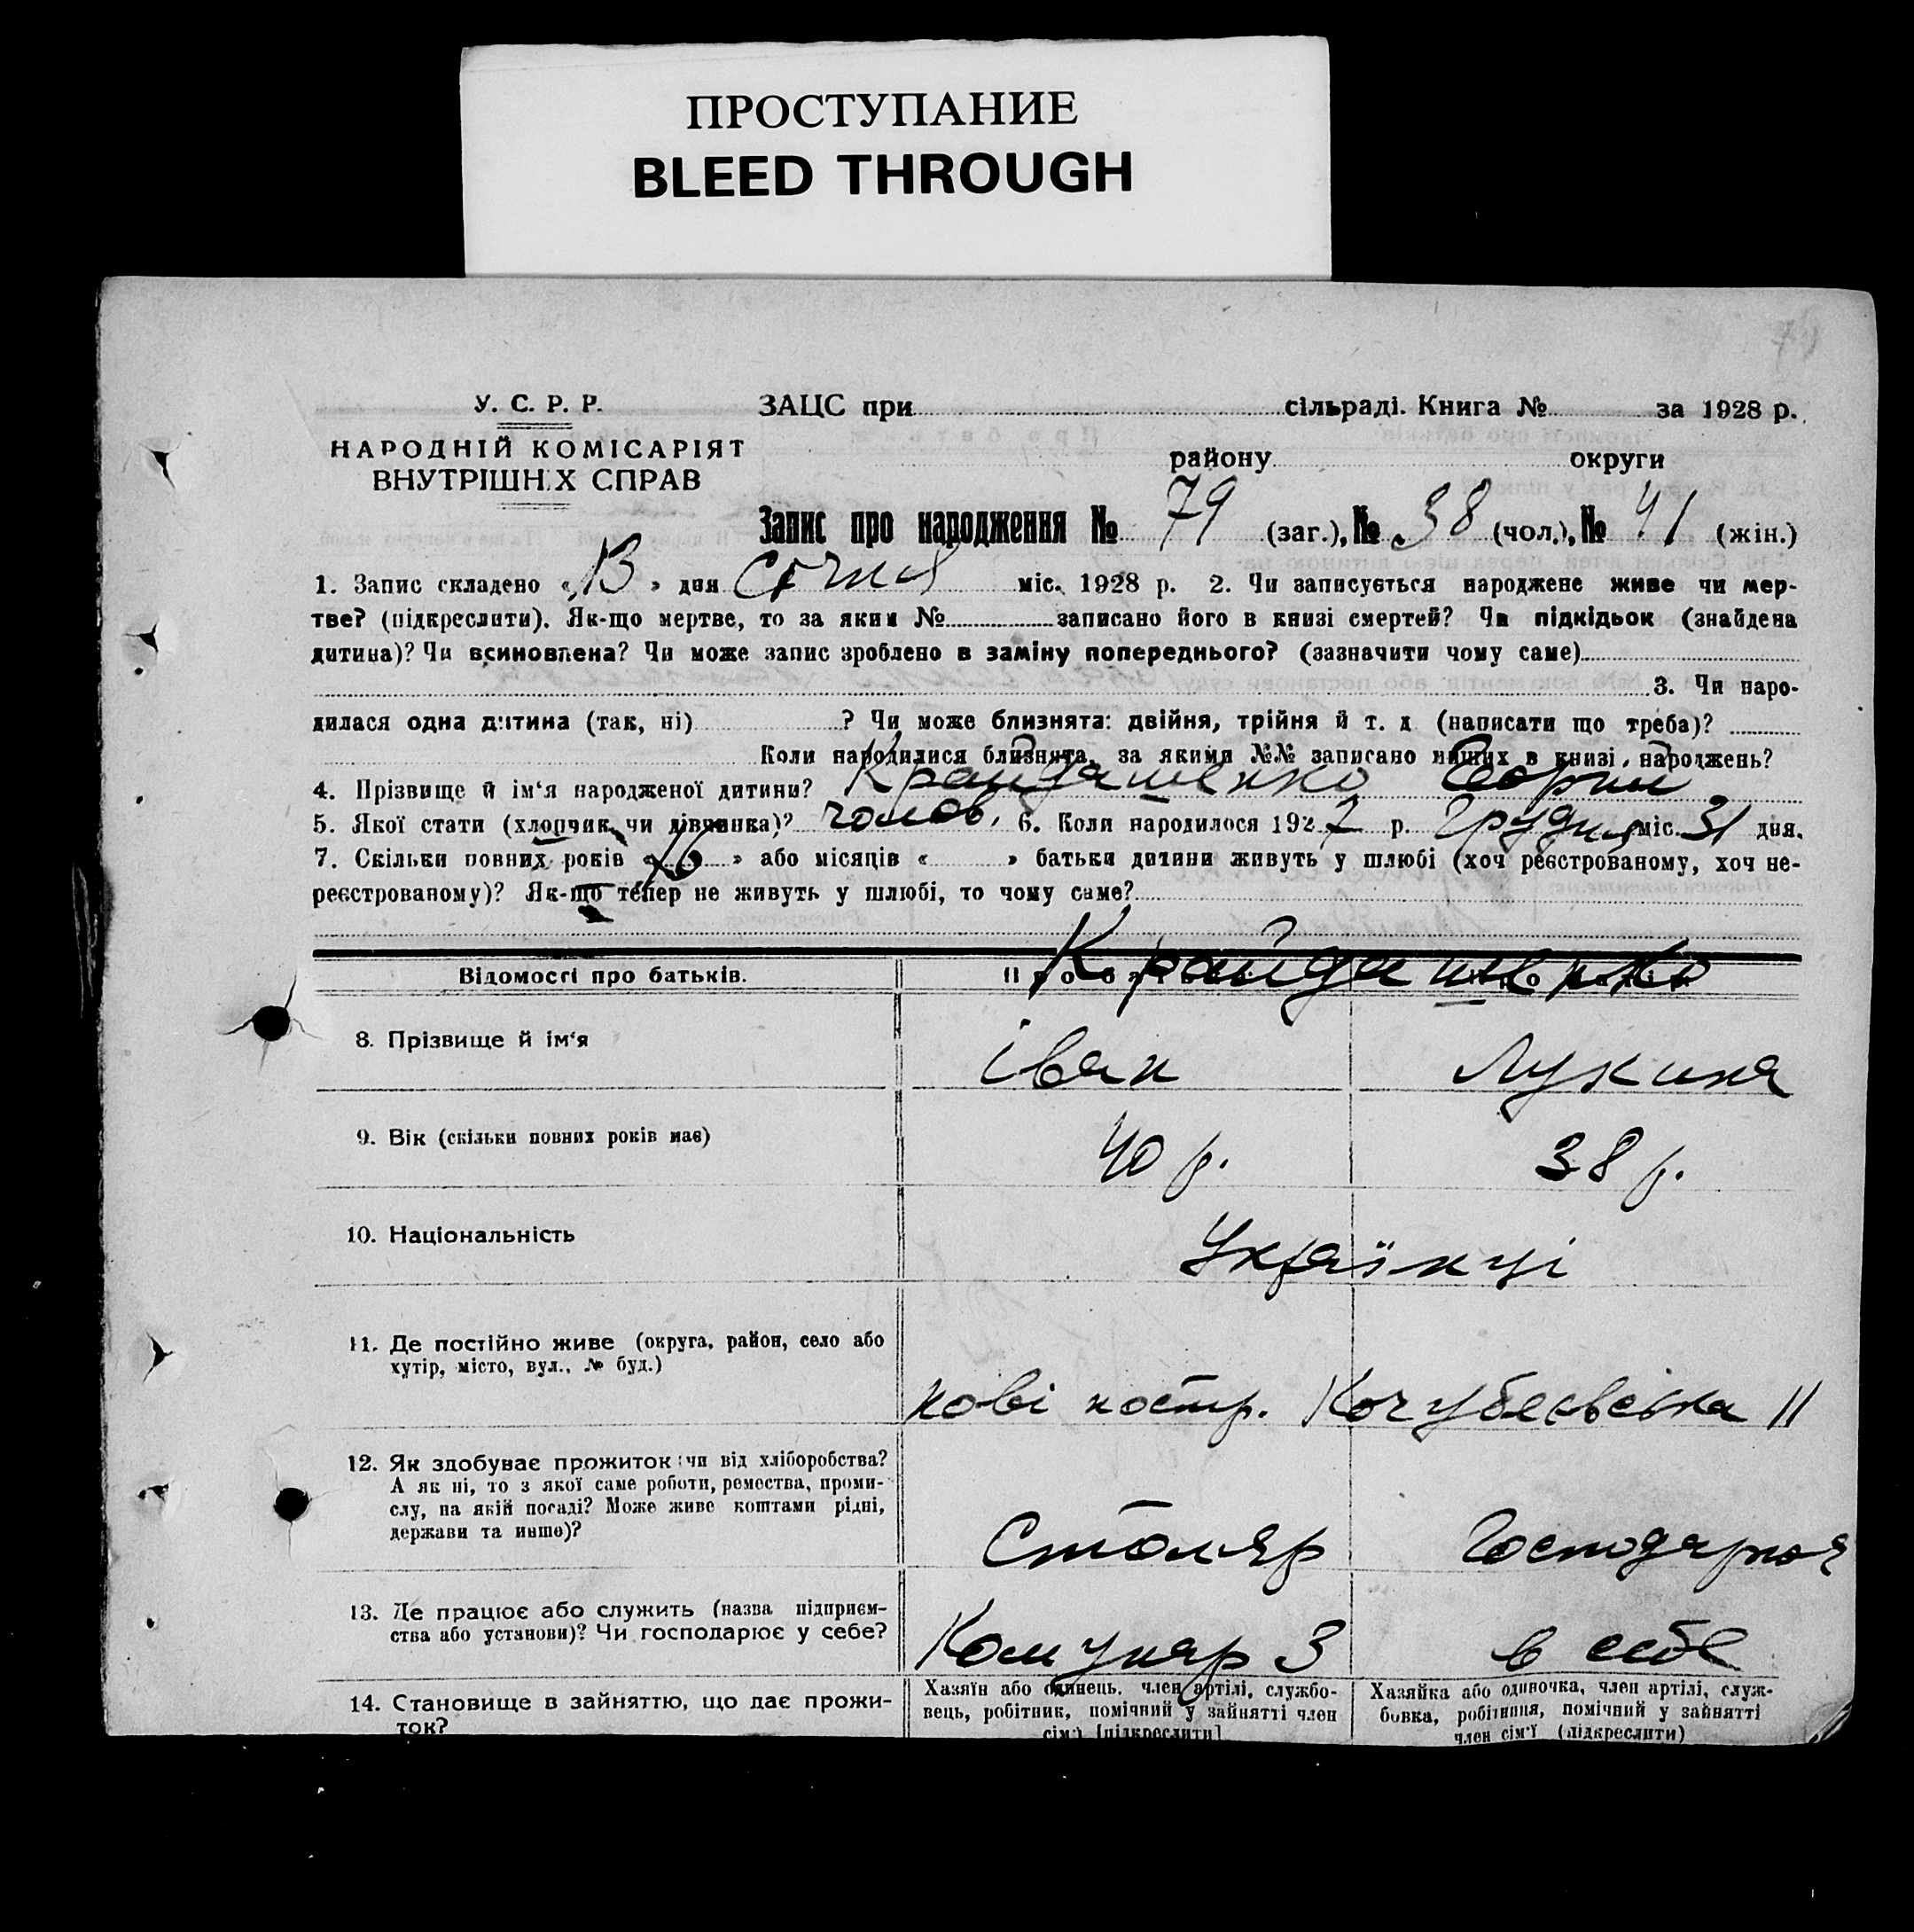 ПРОСТУПАНИЕ
BLEED THROUGH
У. С. Р. Р.
НАРОДНІЙ КОМІСАРІЯТ
ВНУТРІШНІХ СПРАВ
ЗАЦС при сільраді. Книга № за 1928 р.
району округи
Запис про народження № 79 (заг.), № 38 (чол.), № 41 (жін.)
1. Запис складено «13» дня Січня міс. 1928 р. 2. Чи записується народжене живе чи мер-
тве? (підкреслити). Як-що мертве, то за яким № записано його в книзі смертей? Чи підкідьок (знайдена
дитина)? Чи всиновлена? Чи може запис зроблено в заміну попереднього? (зазначити чому саме)
3. Чи наро-
дилася одна дитина (так, ні) ? Чи може близнята: двійня, трійня й т. д (написати що треба)?
Коли народилися близнята, за якими №№ записано инших в книзі народжень?
4. Прізвище й ім'я народженої дитини? Крайдашенко Георгии
5. Якої стати (хлопчик чи дівчинка)? чолов. 6. Коли народилося 1927 р. Грудня міс. 31 дня.
7. Скільки повних років « » або місяців « » батьки дитини живуть у шлюбі (хоч реєстрованому, хоч не-
реєстрованому)? Як-що тепер не живуть у шлюбі, то чому саме?
Відомості про батьків.
Крайдашенко
8. Прізвище й ім'я
Іван Лукина
9. Вік (скільки повних років має)
40 р. 38 р.
10. Національність
Українці
11. Де постійно живе (округа, район, село або
хутір, місто, вул., № буд.)
нові костр. Кочубеєвська 11
12. Як здобуває прожиток: чи від хліборобства?
А як ні, то з якої саме роботи, ремества, проми-
слу, на якій посаді? Може живе коштами рідні,
держави та инше)?
Столяр Господарюя
13. Де працює або служить (назва підприєм-
ства або установи)? Чи господарює у себе?
Комунар 3 в себе
14. Становище в зайняттю, що дає прожи-
ток?
Хазяїн або одинець, член артілі, службо-
вець, робітник, помічний у зайнятті член
сім'ї [підкреслити]
Хазяйка або одиночка, член артілі, служ-
бовка, робітниця, помічний у зайнятті
член сім'ї (підкреслити)